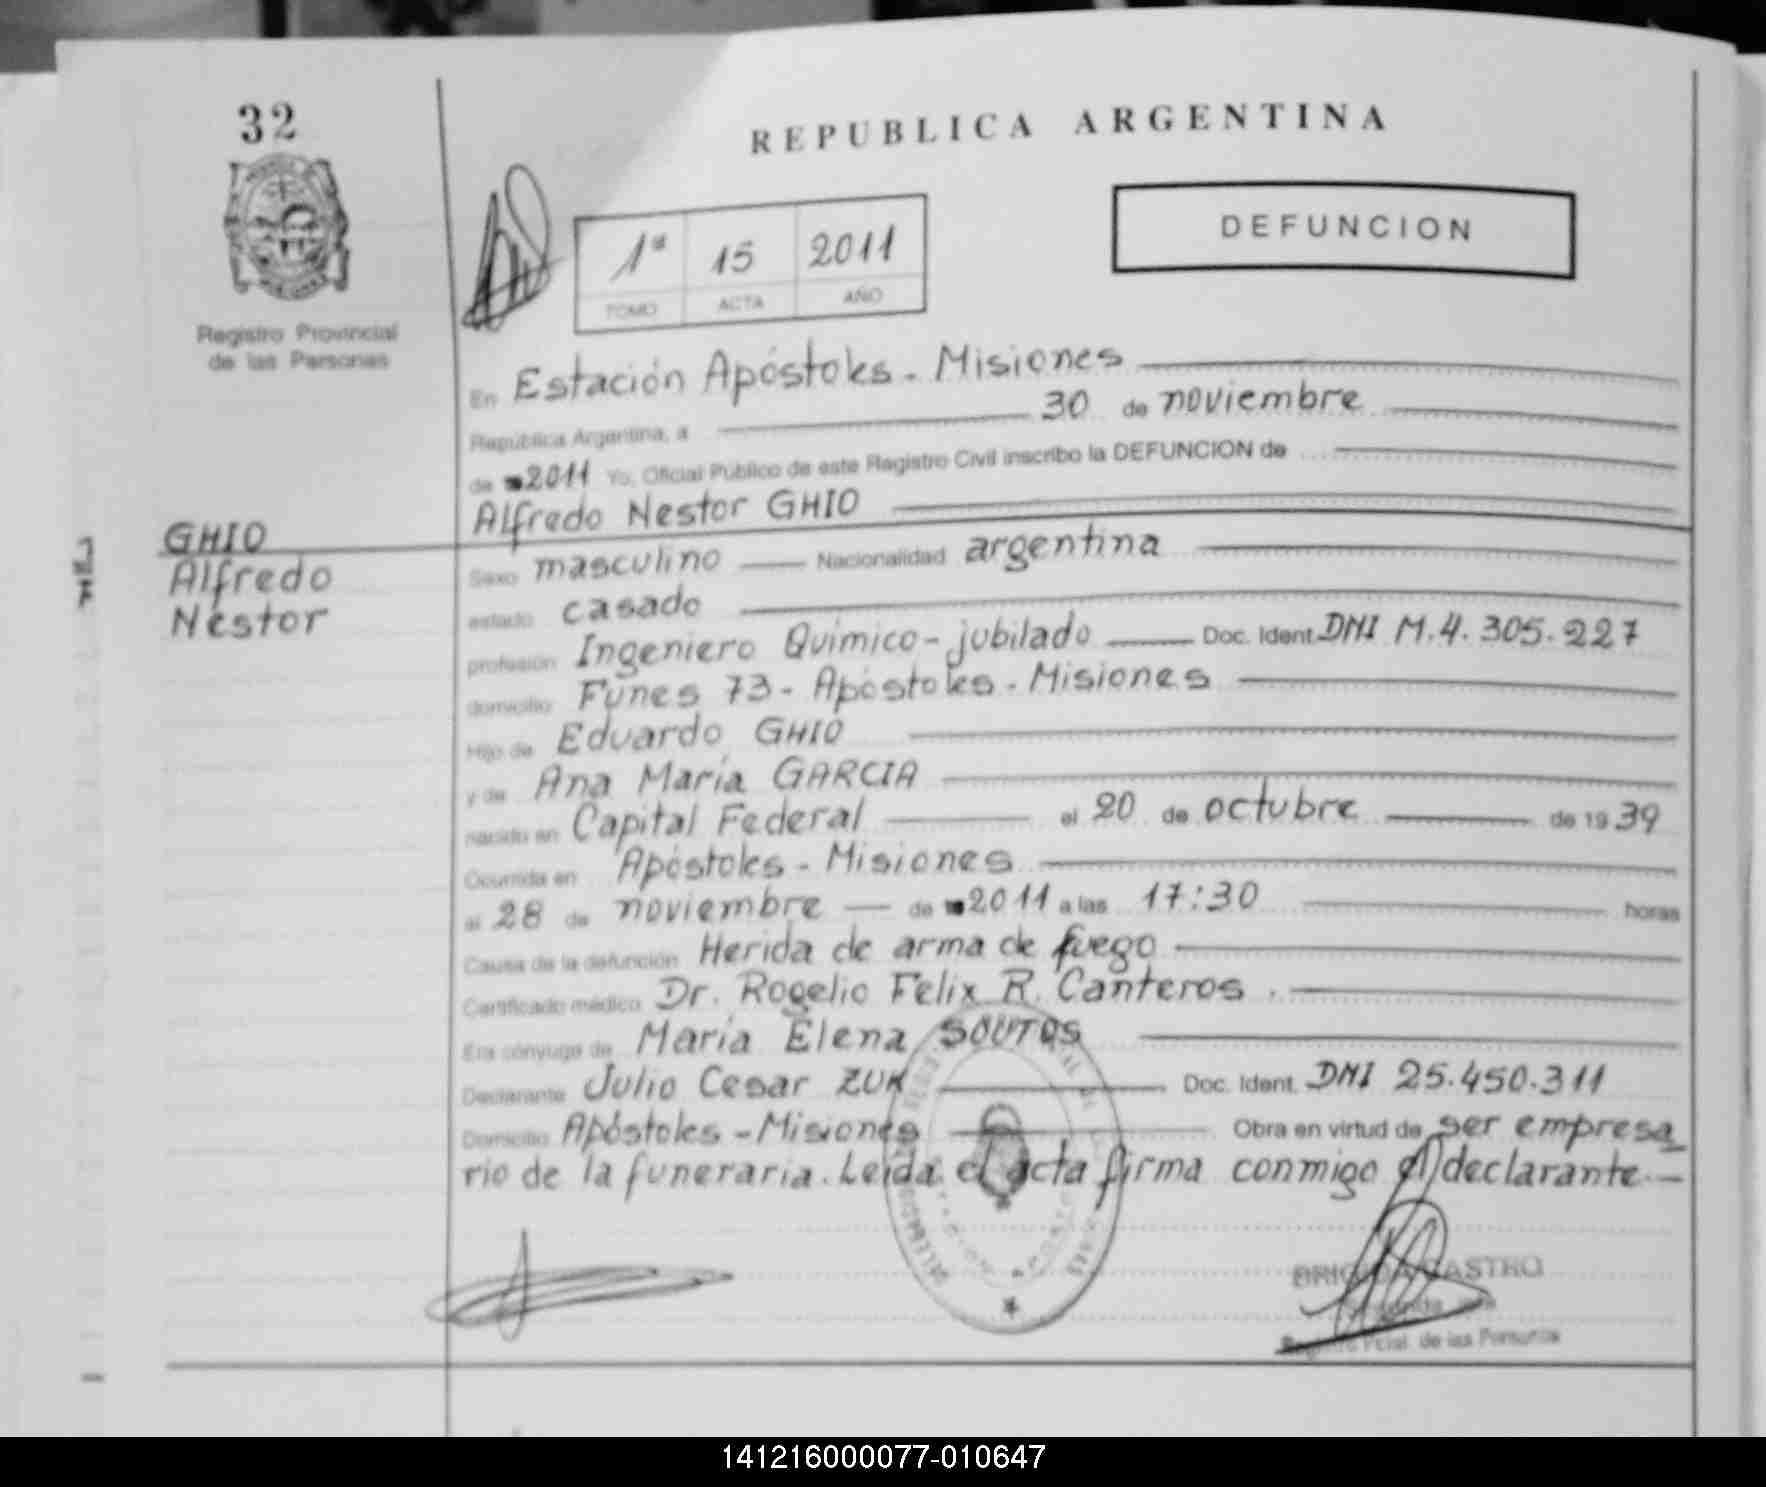 32
Registro Provincial
de las Personas
REPUBLICA ARGENTINA
DEFUNCION
1ª 15 2011
TOMO ACTA AÑO
En Estación Apóstoles - Misiones
República Argentina, a 30 de noviembre
de 2011 Yo, Oficial Público de este Registro Civil inscribo la DEFUNCION de
Alfredo Nestor GHIO
GHIO
Alfredo
Néstor
Sexo masculino Nacionalidad argentina
estado casado
profesión Ingeniero Químico - jubilado Doc. Ident. DNI M. 4. 305. 227
domicilio Funes 73 - Apóstoles - Misiones
Hijo de Eduardo GHIO
y de Ana María GARCIA
nacido en Capital Federal el 20 de octubre de 19 39
Ocurrida en Apóstoles - Misiones
el 28 de noviembre de 2011 a las 17:30 horas
Causa de la defunción Herida de arma de fuego
Certificado médico Dr. Rogelio Felix R. Canteros
Era cónyuge de María Elena SOUTOS
Declarante Julio Cesar ZUK Doc. Ident. DNI 25.450.311
Domicilio Apóstoles - Misiones Obra en virtud de ser empresa
rio de la funeraria. Leída el acta firma conmigo el declarante.-
CASTRO
de las Personas
141216000077-010647